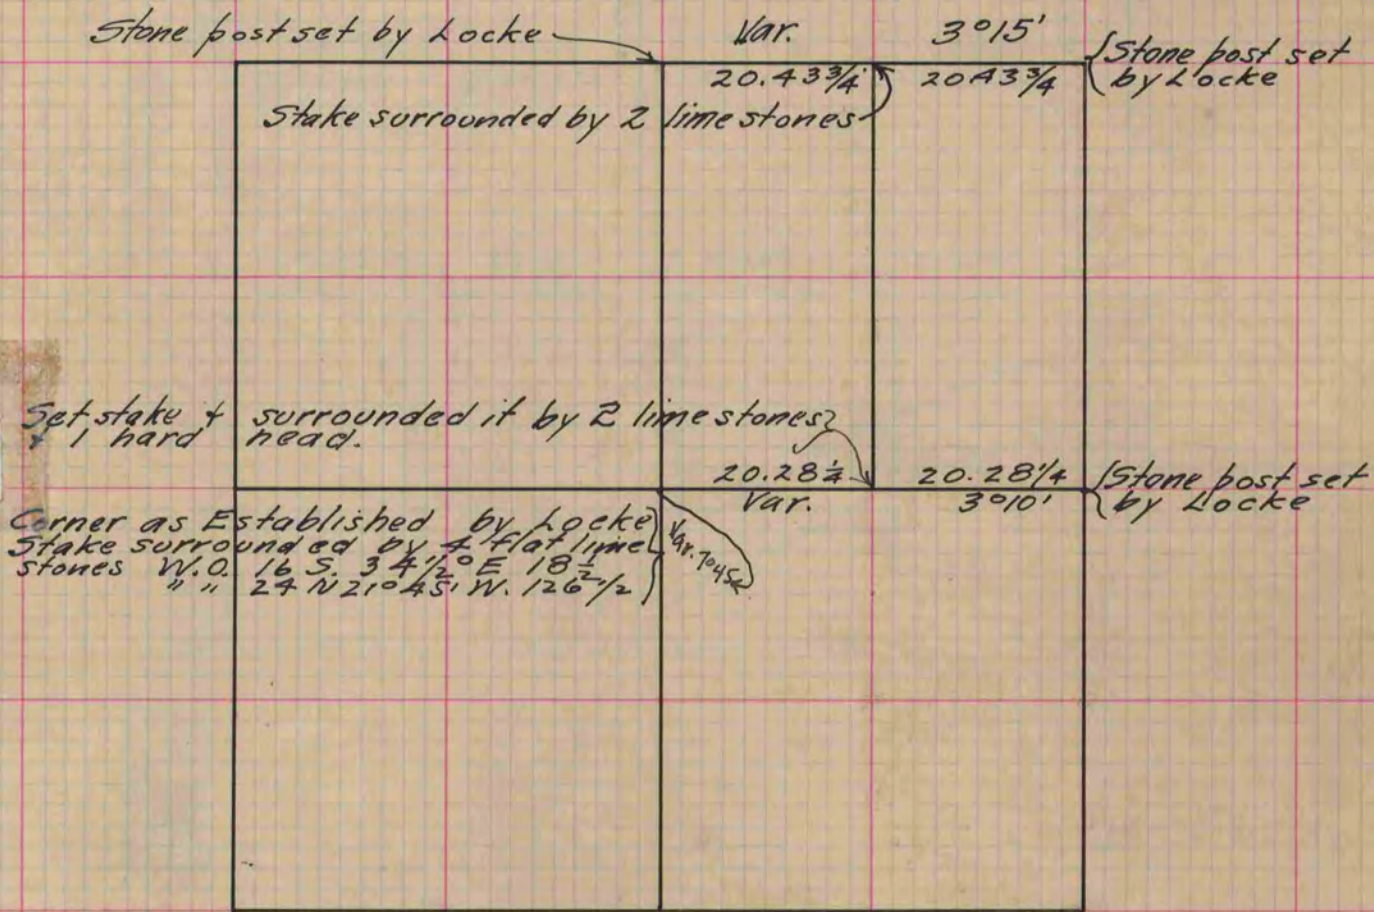 Stone post set by Locke
Var. 3°15'
Stone post set
by Locke
20.43 3/4 20.43 3/4
Stake surrounded by 2 lime stones
Set stake & surrounded it by 2 lime stones
& 1 hard head.
20.28 1/4 20.28 1/4
Var. 3°10'
Stone post set
by Locke
Corner as Established by Locke
Stake surrounded by 4 flat lime
stones W.O. 16 S. 34 1/2° E 18 1/2
" " 24 N 21° 45' W. 126 1/2
Var. 7°45'